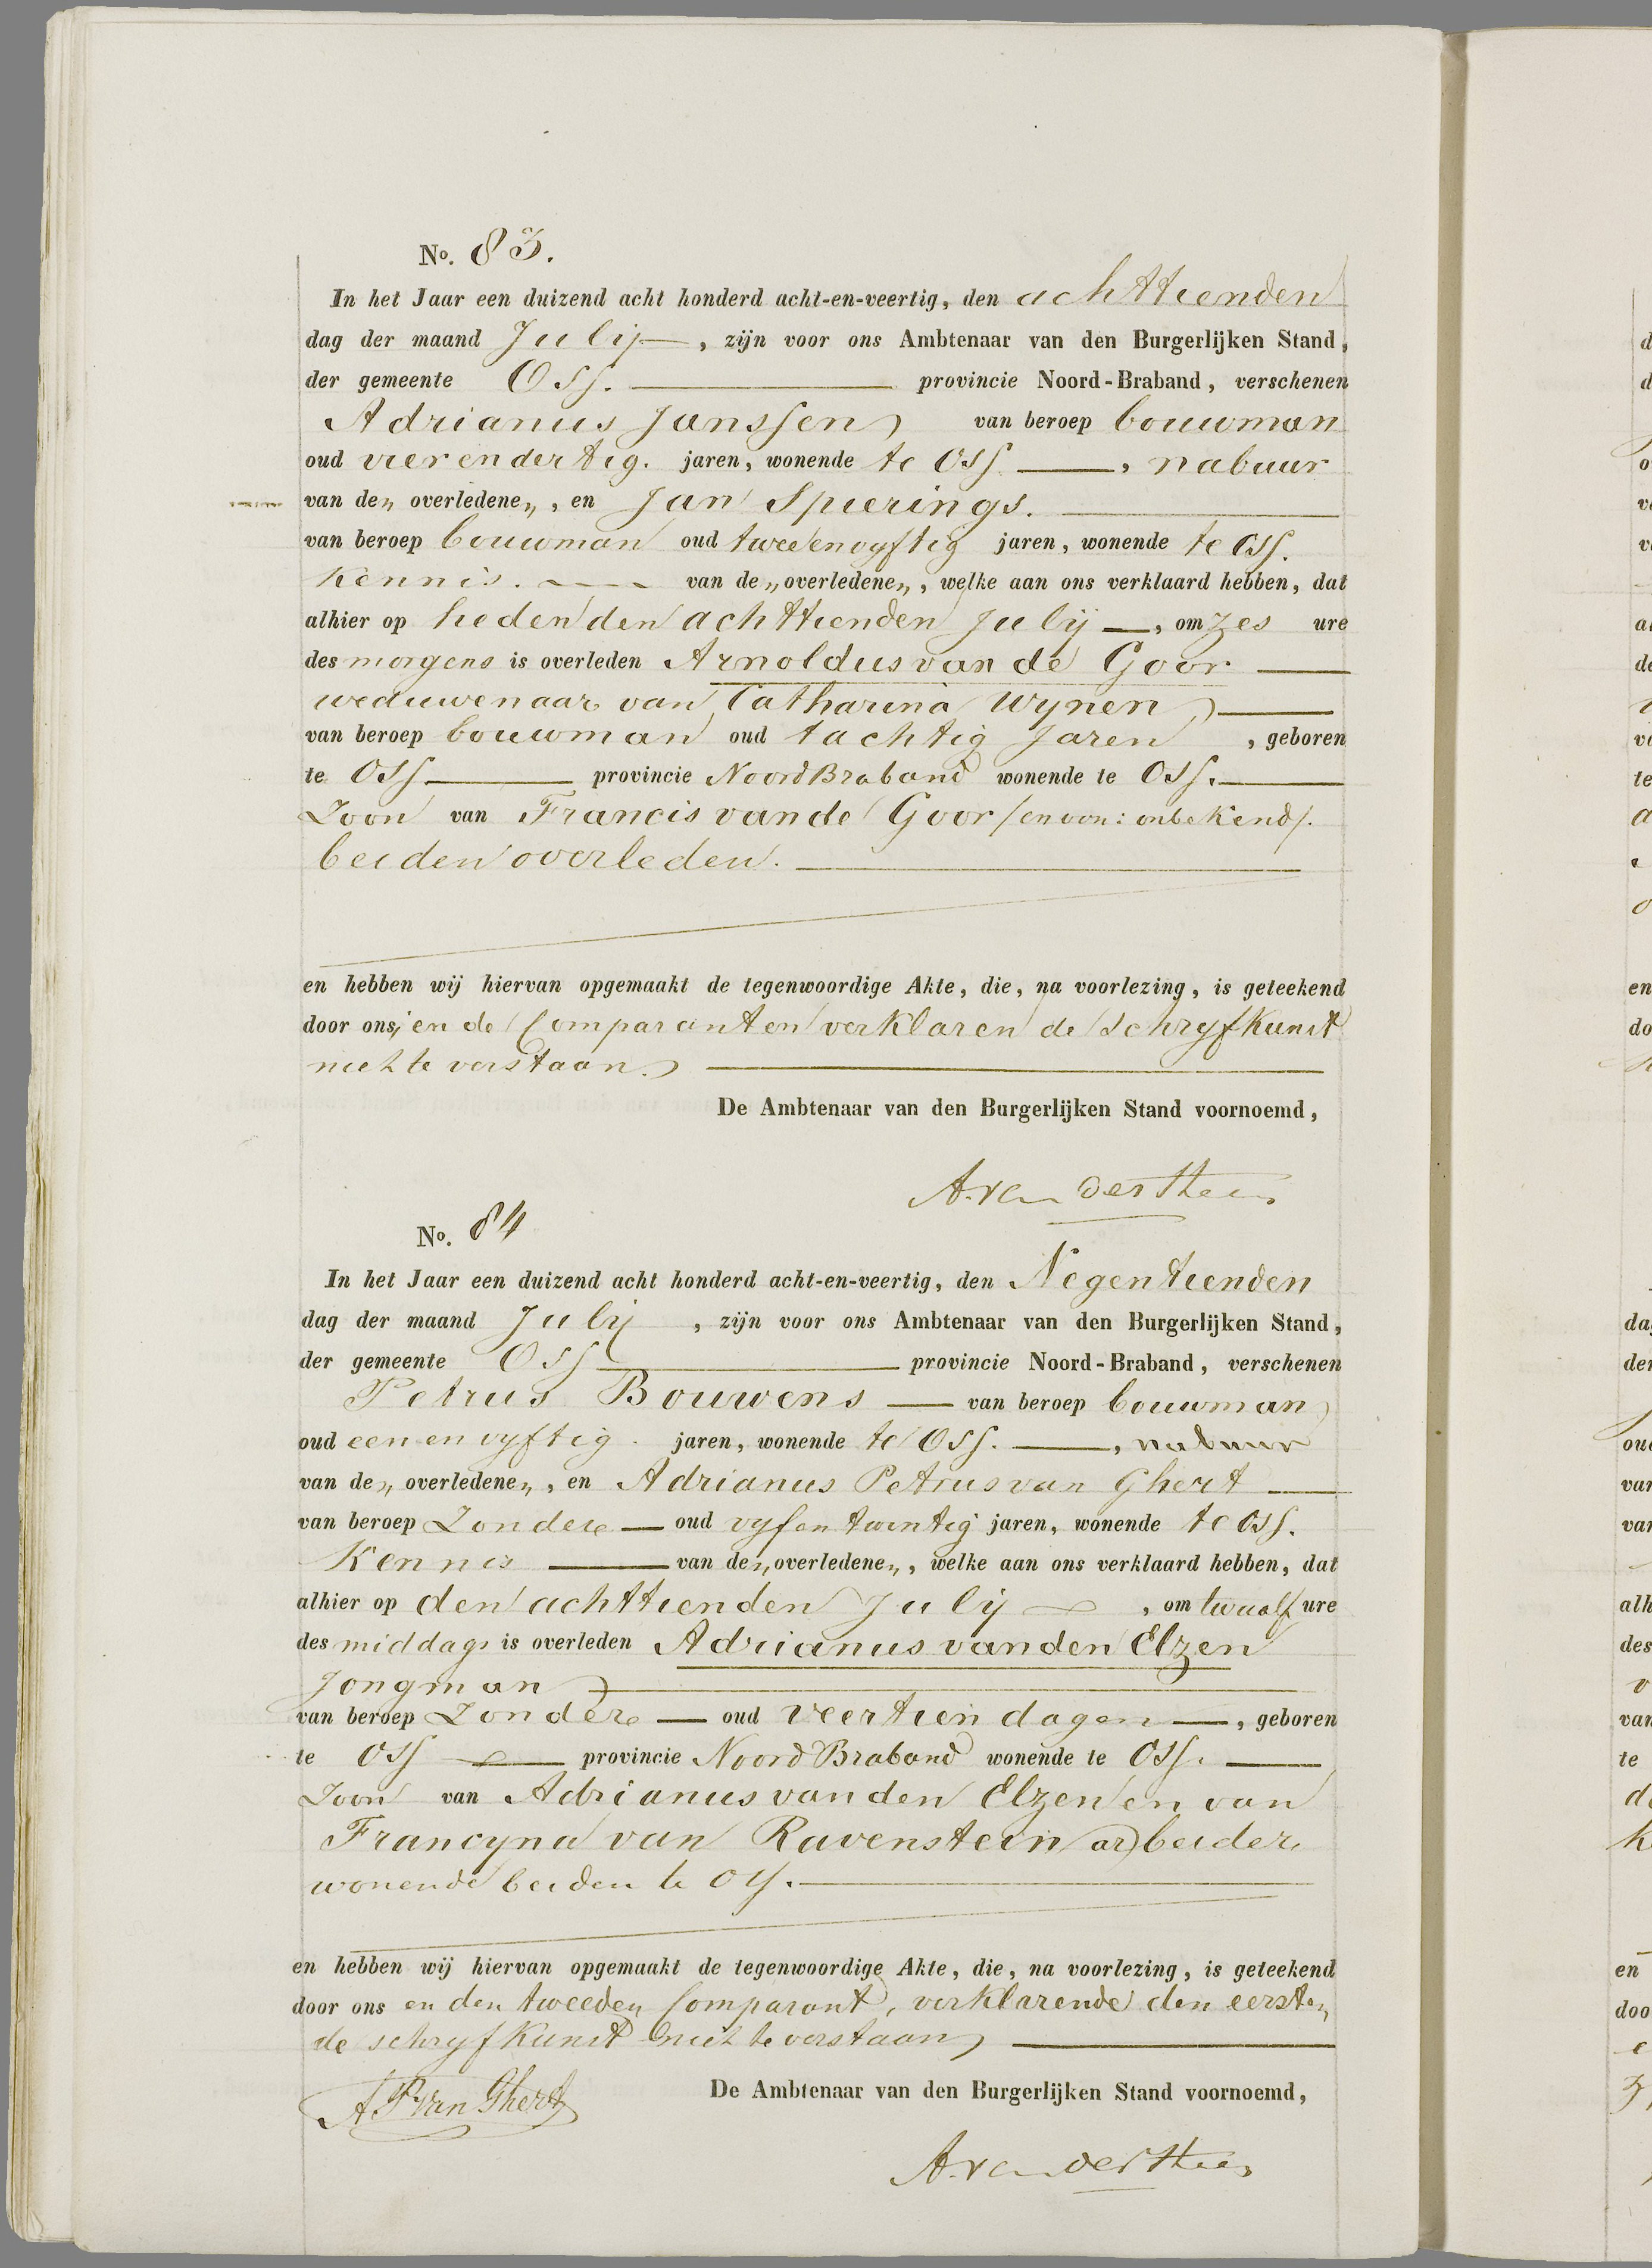 No. 83.
In het Jaar een duizend acht honderd acht-en-veertig, den achttienden
dag der maand Julij —, zijn voor ons Ambtenaar van den Burgerlijken Stand,
der gemeente Oss. — provincie Noord-Braband, verschenen
Adrianus Janssen van beroep bouwman
oud vierendertig. jaren, wonende te Oss —, nabuur
van de„ overledene„, en Jan Spierings. —
van beroep bouwman oud tweeenvyftig jaren, wonende te Oss.
Kennis. — van de „overledene„, welke aan ons verklaard hebben, dat
alhier op heden den achttienden Julij —, om zes ure
des morgens is overleden Arnoldus van de Goor —
weduwenaar van Catharina Wynen —
van beroep bouwman oud tachtig Jaren , geboren
te Oss — provincie Noord Braband wonende te Oss. —
Zoon van Francis van de Goor /en von: onbekend/.
beiden overleden. —
en hebben wij hiervan opgemaakt de tegenwoordige Akte, die, na voorlezing, is geteekend
door ons, en de Comparanten verklaren de schryfkunst
niet te verstaan. —
De Ambtenaar van den Burgerlijken Stand voornoemd,
A. van der
No. 84
In het Jaar een duizend acht honderd acht-en-veertig, den Negentienden
dag der maand Julij , zijn voor ons Ambtenaar van den Burgerlijken Stand,
der gemeente Oss — provincie Noord-Braband, verschenen
Petrus Bouwens — van beroep bouwman
oud een en vyftig. jaren, wonende te Oss. —, nabuur
van de„ overledene„, en Adrianus Petrus van Ghert —
van beroep Zondere — oud vyfentwintig jaren, wonende te Oss.
Kennis — van de „overledene„, welke aan ons verklaard hebben, dat
alhier op den achttienden Julij — , om twaalf ure
des middags is overleden Adrianus van den Elzen
Jongman —
van beroep Zondere — oud veertien dagen —, geboren
te Oss — provincie Noord Braband wonende te Oss. —
Zoon van Adrianus van den Elzen en van
Francyna van Ravenstein arbeider
wonende beiden te Oss. —
en hebben wij hiervan opgemaakt de tegenwoordige Akte, die, na voorlezing, is geteekend
door ons en den tweeden Comparant, verklarende den eersten
de schryfkunst niet te verstaan —
A P van Ghert
De Ambtenaar van den Burgerlijken Stand voornoemd,
A. van der